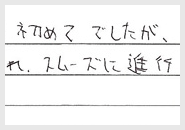 初めてでしたが、
れ、スムーズに進行